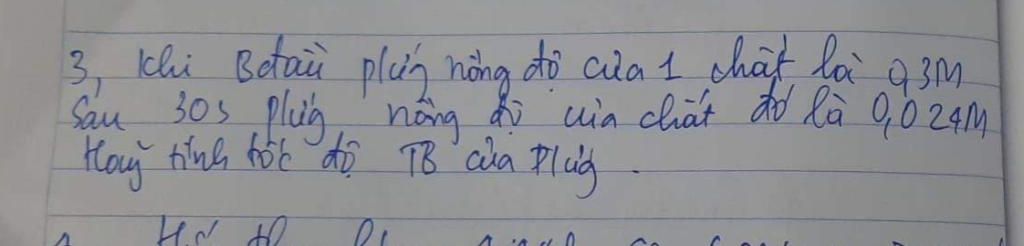 3, Khi Bđầu pứng nồng độ của 1 chất là 0,3M
Sau 30s pứng nồng độ của chất đó là 0,024M
Hãy tính tốc độ TB của pứng.